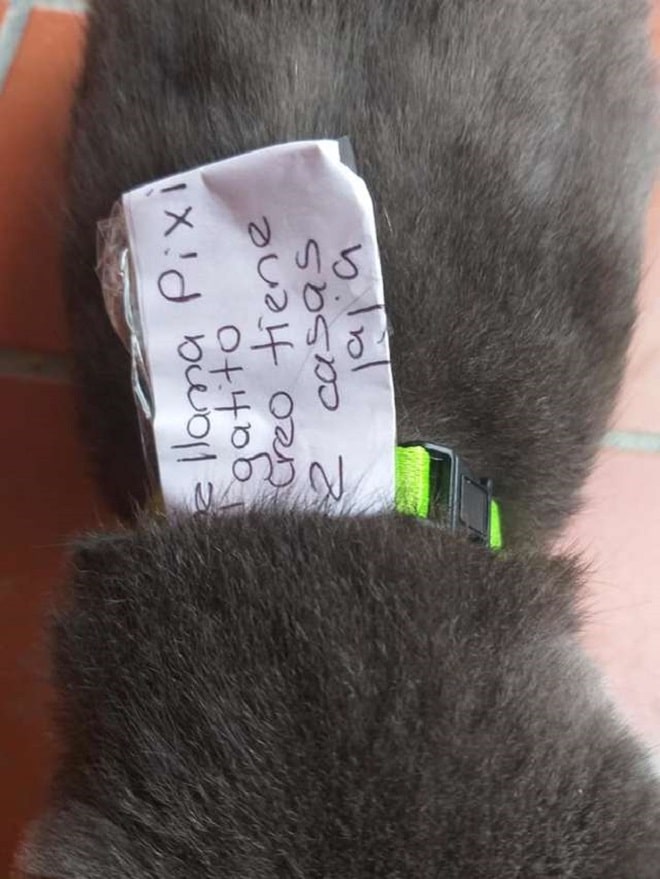 se llama Pixi
gatito
creo tiene
2 casas
jaja